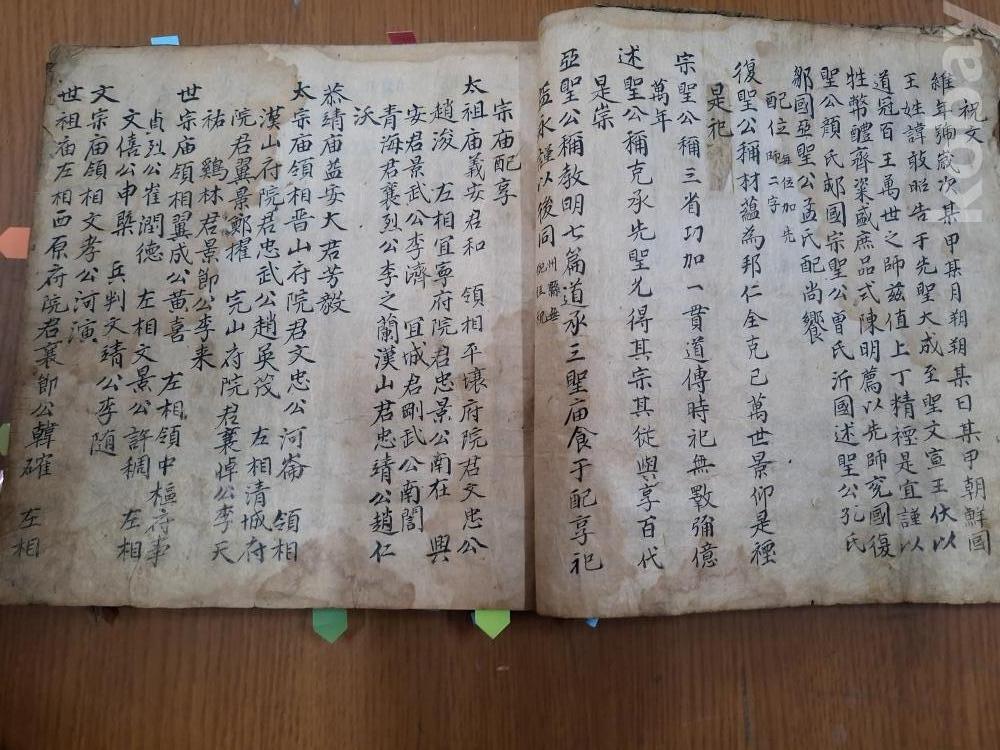 祝文
維年號歲次某甲某月朔朔某日某甲朝鮮國
王姓諱敢昭告于先聖大成至聖文宣王伏以
道冠百王萬世之師茲值上丁精禋是宜謹以
牲幣醴齊粢盛庶品式陳明薦以先師兗國復
聖公顏氏郕國宗聖公曾氏沂國述聖公孔氏
鄒國亞聖公孟氏配尚饗
配位 每位加先師二字
復聖公稱材蘊為邦仁全克己萬世景仰是禋
是祀
宗聖公稱三省功加一貫道傳時祀無斁彌億
萬年
述聖公稱克承先聖允得其宗其從與享百代
是崇
亞聖公稱教明七篇道承三聖庙食于配享祀
益永 謹以後同 州縣無
宗庙配享
太祖庙義安君和 領相平壤府院君文忠公
趙浚 左相宜寧府院君忠景公南在 興
安君景武公李濟 宜城君剛武公南誾
青海君襄烈公李之蘭漢山君忠靖公趙仁
沃
恭靖庙益安大君芳毅
太宗庙領相晋山府院君文忠公河崙 領相
漢山府院君忠武公趙英茂 左相清城府
院君翼景鄭擢 完山府院君襄悼公李天
祐 鷄林君景節公李来
世宗庙領相翼成公黄喜 左相領中樞府事
貞烈公崔潤德 左相文景公許稠 左相
文僖公申槩 兵判文靖公李随
文宗庙領相文孝公河演
世祖庙左相西原府院君襄節公韓確 左相
kobay